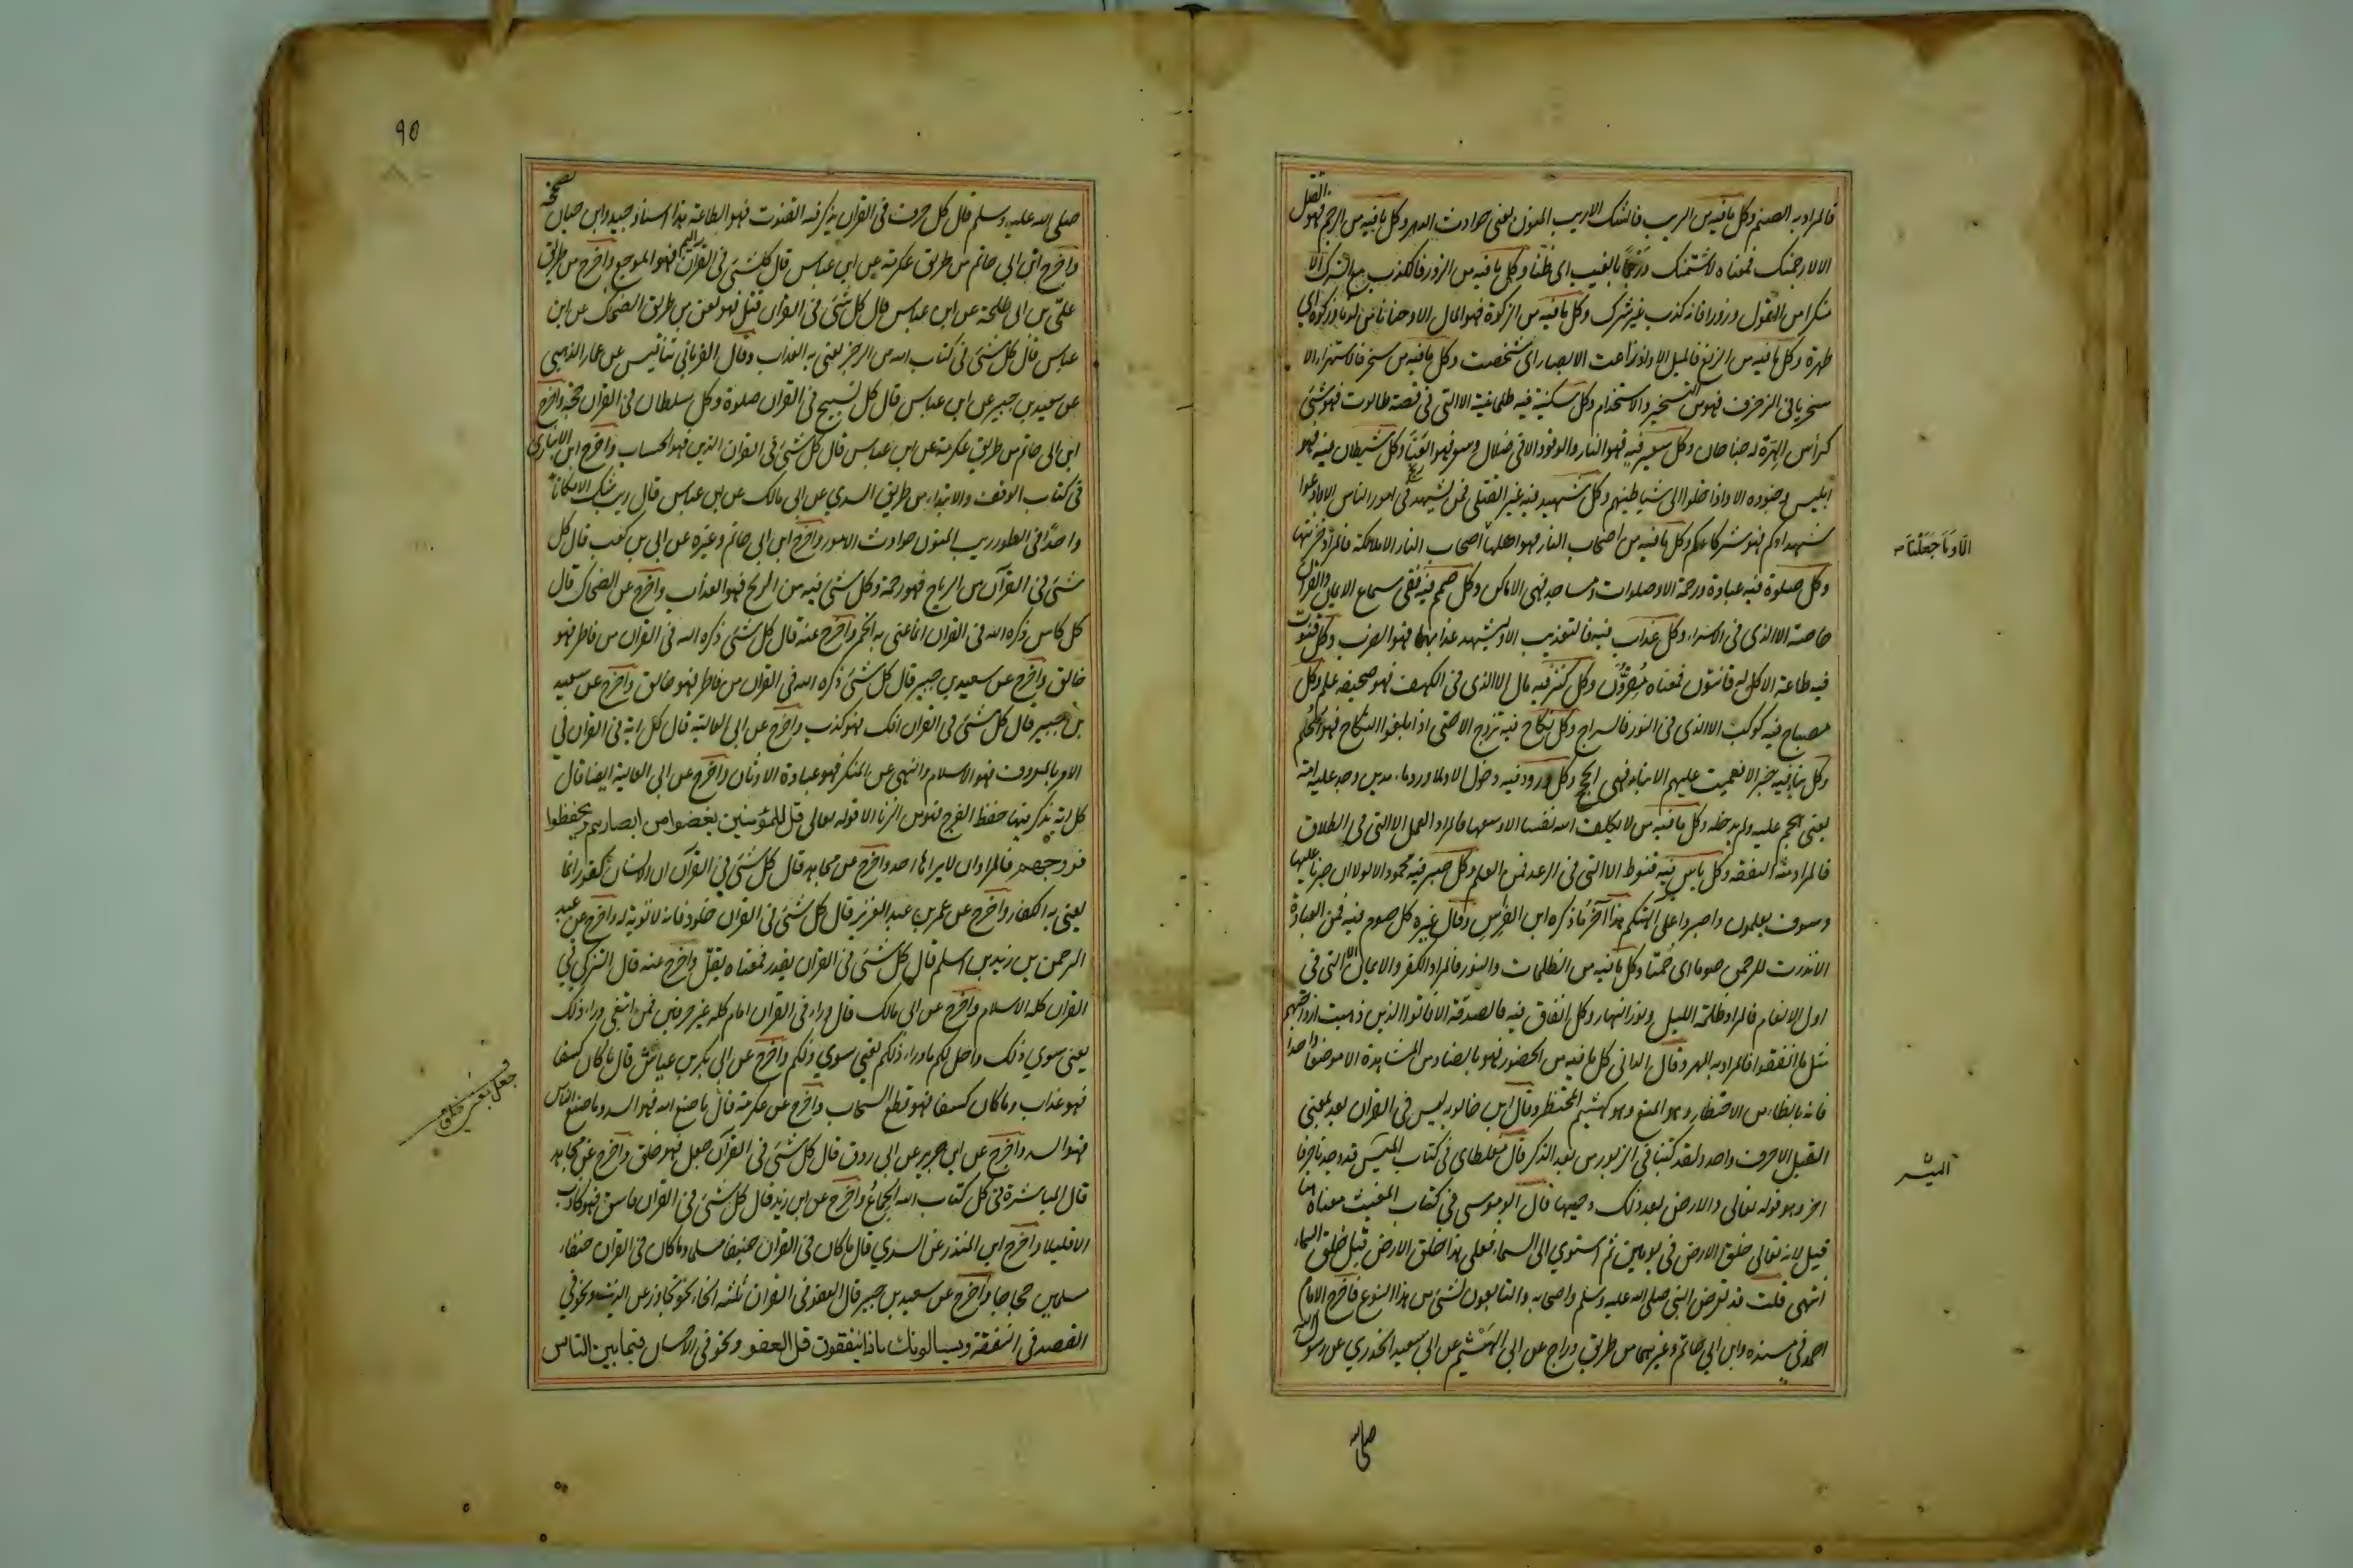 فالمراد به الصنم وكل ما فيه من الريب فالشك الا ريب المنون يعني حوادث الدهر وكل ما فيه من الرجم فهو القتل
الا لارجمنك فمعناه لاشتمنك ورجما بالغيب اى ظنا وكل ما فيه من الزور فالكذب مع الشرك الا
منكرا من القول وزورا فانه كذب غير شرك وكل ما فيه من الزكوة فهو المال الا وحنانا من لدنا وزكوة اى
طهرة وكل ما فيه من الزيغ فالميل الا واذ زاغت الابصار اى شخصت وكل ما فيه من سخر فالاستهزاء الا
سخريا فى الزخرف فهو من التسخير والاستخدام وكل سكينة فيه طمانينة الا التى فى قصة طالوت فهو شئ
كرأس الهرة له جناحان وكل سعير فيه فهو النار والوقود الا فى ضلال وسعر فهو العنا وكل شيطان فيه فهو
ابليس وجنوده الا واذا خلوا الى شياطينهم وكل شهيد فيه غير القتلى فمن يشهد فى امور الناس الا وادعوا
شهداءكم فهو شركاءكم وكل ما فيه من اصحاب النار فهو اهلها اصحاب النار الا ملائكة فالمراد خزنتها
وكل صلوة فيه عبادة ورحمة الا وصلوات ومساجد فهى الاماكن وكل صمم فيه ففى سماع الايمان والقرآن
خاصة الا الذى فى الاسراء وكل عذاب فيه فالتعذيب الا وليشهد عذابهما فهو الضرب وكل قنوت
فيه طاعة الا كل له قانتون فمعناه مقرون وكل كنز فيه مال الا الذى فى الكهف فهو صحيفة علم وكل
مصباح فيه كوكب الا الذى فى النور فالسراج وكل نكاح فيه تزوج الا حتى اذا بلغوا النكاح فهو الحلم
وكل نبا فيه خبر الا فعميت عليهم الانباء فهى الحجج وكل ورود فيه دخول الا ولما ورد ماء مدين
يعنى هجم عليه ولم يدخله وكل ما فيه من لا يكلف الله نفسا الا وسعها فالمراد العمل الا التى فى الطلاق
فالمراد منه النفقة وكل ياس فيه قنوط الا التى فى الرعد فمن العلم وكل صبر فيه محمود الا لولا ان صبرنا عليها
وسوف يعلمون واصبروا على آلهتكم هذا آخر ما ذكره ابن الفرس وقال غيره كل صوم فيه فمن العبادة
الا نذرت للرحمن صوما اى صمتا وكل ما فيه من الظلمات والنور فالمراد الكفر والايمان الا التى فى
اول الانعام فالمراد ظلمة الليل ونور النهار وكل انفاق فيه فالصدقة الا فاتوا الذين ذهبت ازواجهم
مثل ما انفقوا فالمراد به المهر وقال الدانى كل ما فيه من الحضور فهو بالضاد من المشاهدة الا موضعا واحدا
فانه بالظاء من الاحتظار وهو المنع وهو كهشيم المحتظر وقال ابن خالويه ليس فى القران بعد بمعنى
القبل الا حرف واحد ولقد كتبنا فى الزبور من بعد الذكر قال مغلطاى فى كتاب الميس قد وجدنا حرفا
اخر وهو قوله تعالى والارض بعد ذلك دحيها قال ابو موسى فى كتاب المغيث معناه هنا
قبل لانه تعالى خلق الارض فى يومين ثم استوى الى السماء فعلى هذا خلق الارض قبل خلق السماء
انتهى قلت قد تعرض النبى صلى الله عليه وسلم واصحابه والتابعون لشئ من هذا النوع فاخرج الامام
احمد فى مسنده وابن ابى حاتم وغيرهما من طريق دراج عن ابى الهيثم عن ابى سعيد الخدرى عن رسول الله
الا وما جعلنا
الميس
صلى الله
٩٥
صلى الله عليه وسلم قال كل حرف فى القران يذكر فيه القنوت فهو الطاعة هذا اسناد جيد وابن حبان يصححه
واخرج ابن ابى حاتم من طريق عكرمة عن ابن عباس قال كل شئ فى القران اليم فهو الموجع واخرج من طريق
على بن ابى طلحة عن ابن عباس قال كل شئ فى القران قتل فهو لعن من طريق الضحاك عن ابن
عباس قال كل شئ فى كتاب الله من الرجز يعنى به العذاب وقال الفريابى ثنا قيس عن عمار الذهبى
عن سعيد بن جبير عن ابن عباس قال كل تسبيح فى القران صلوة وكل سلطان فى القران حجة واخرج
ابن ابى حاتم من طريق عكرمة عن ابن عباس قال كل شئ فى القران الدين فهو الحساب واخرج ابن الانبارى
فى كتاب الوقف والابتداء من طريق السدي عن ابى مالك عن ابن عباس قال ريب شك الا مكانا
واحدا فى الطور ريب المنون حوادث الامور واخرج ابن ابى حاتم وغيره عن ابى بن كعب قال كل
شئ فى القرآن من الرياح فهو رحمة وكل شئ فيه من الريح فهو العذاب واخرج عن الضحاك قال
كل كاس ذكره الله فى القران انما عنى به الخمر واخرج عنه قال كل شئ ذكره الله فى القران من فاطر فهو
خالق واخرج عن سعيد بن جبير قال كل شئ ذكره الله فى القران من فاطر فهو خالق واخرج عن سعيد
بن جبير قال كل شئ فى القران افك فهو كذب واخرج عن ابى العالية قال كل اية فى القران فى
الامر بالمعروف فهو الاسلام والنهى عن المنكر فهو عبادة الاوثان واخرج عن ابى العالية ايضا قال
كل اية يذكر فيها حفظ الفرج فهو من الزنا الا قوله تعالى قل للمؤمنين يغضوا من ابصارهم ويحفظوا
فروجهم فالمراد ان لا يراها احد واخرج عن مجاهد قال كل شئ فى القرآن ان الانسان كفور انما
يعنى به الكفار واخرج عن عمر بن عبد العزيز قال كل شئ فى القران خلود فانه لا توبة له واخرج عن عبد
الرحمن بن زيد بن اسلم قال كل شئ فى القران يقدر فمعناه يقل واخرج عنه قال التزكى فى
القران كله الاسلام واخرج عن ابى مالك قال وراء فى القران امام كله غير حرفين فمن ابتغى وراء ذلك
يعنى سوى ذلك واحل لكم ما وراء ذلكم يعنى سوى ذلكم واخرج عن ابى بكر بن عياش قال ما كان كسفا
فهو عذاب وما كان كسفا فهو قطع السحاب واخرج عن عكرمة قال ما صنع الله فهو السد وما صنع الناس
فهو السد واخرج عن ابن جرير عن ابى روق قال كل شئ فى القرآن جعل فهو خلق واخرج عن مجاهد
قال المباشرة فى كل كتاب الله الجماع واخرج عن ابن زيد قال كل شئ فى القران فاسق فهو كاذب
الا قليلا واخرج ابن المنذر عن السدي قال ما كان فى القران حنيفا مسلما وما كان فى القران حنفاء
مسلمين حجاجا واخرج عن سعيد بن جبير قال العفو فى القران ثلثة انحاء نحو تجاوز عن الذنب ونحو فى
القصد فى النفقة ويسالونك ماذا ينفقون قل العفو ونحو فى الاحسان فيما بين الناس
جعل بمعنى خلق